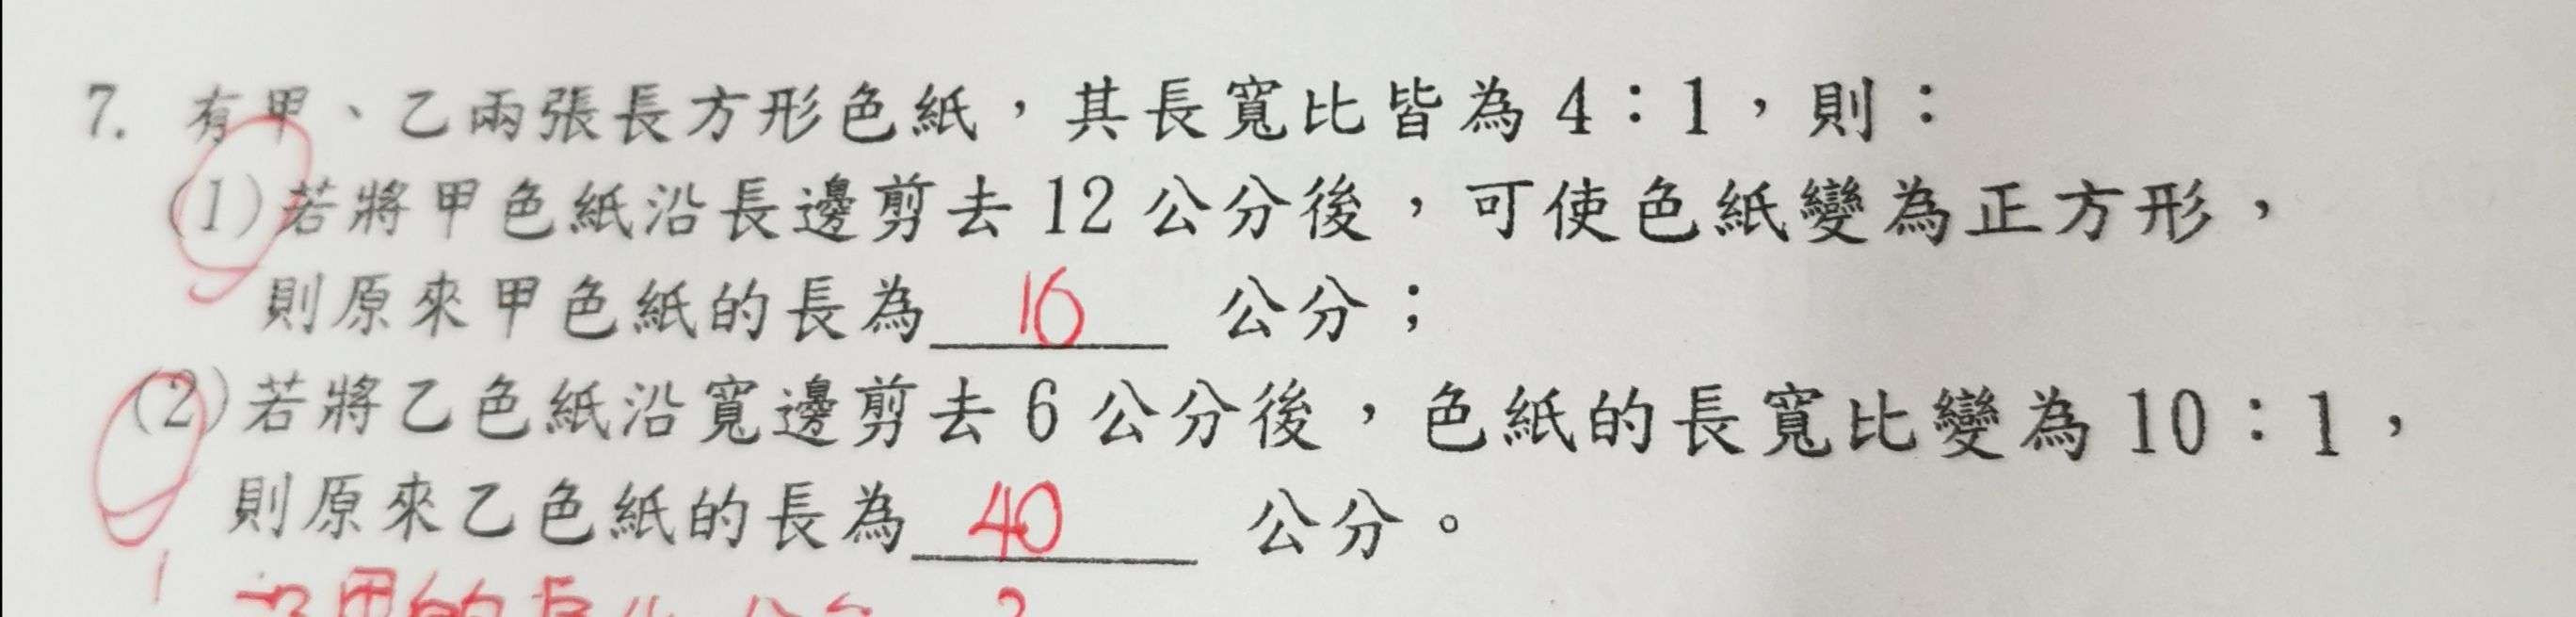 7. 有甲、乙兩張長方形色紙，其長寬比皆為4：1，則：
(1)若將甲色紙沿長邊剪去12公分後，可使色紙變為正方形，
則原來甲色紙的長為 16 公分；
(2)若將乙色紙沿寬邊剪去6公分後，色紙的長寬比變為10：1，
則原來乙色紙的長為 40 公分。